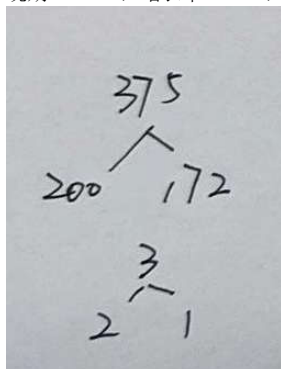 375
200 172
3
2 1